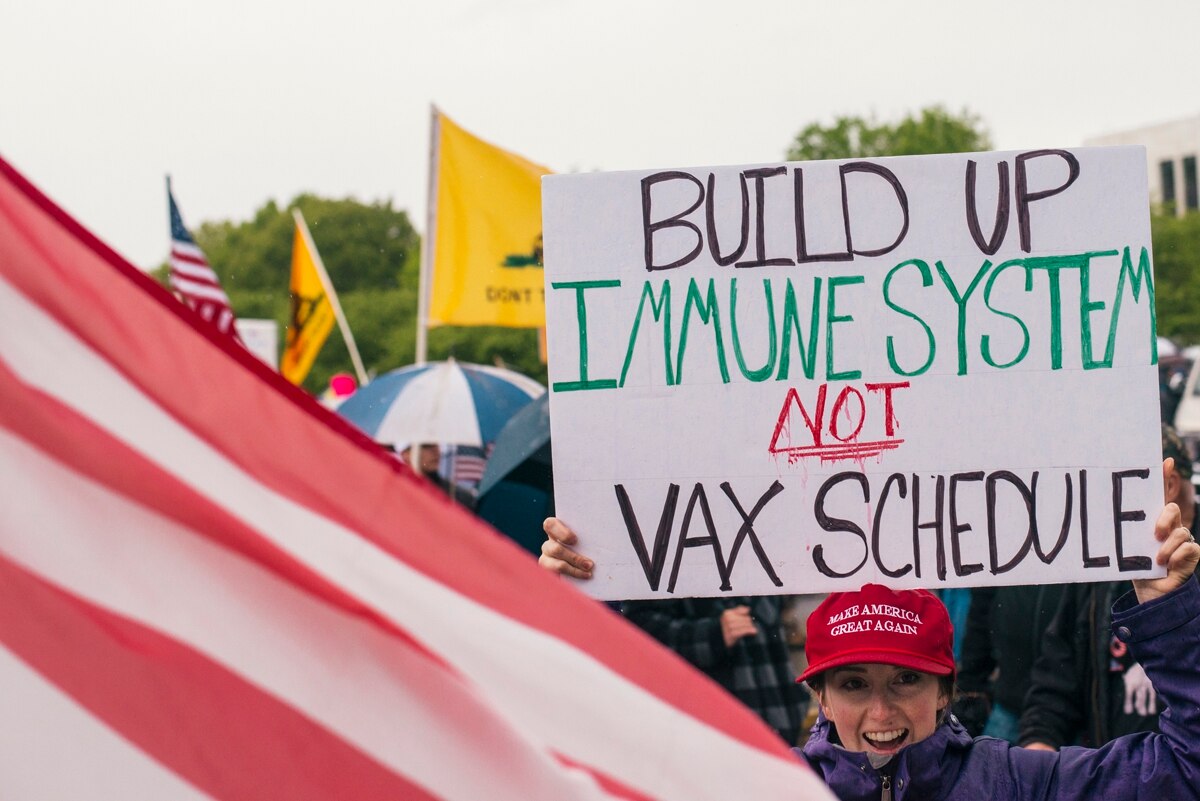 DON'T
BUILD UP
IMMUNE SYSTEM
NOT
VAX SCHEDULE
MAKE AMERICA
GREAT AGAIN